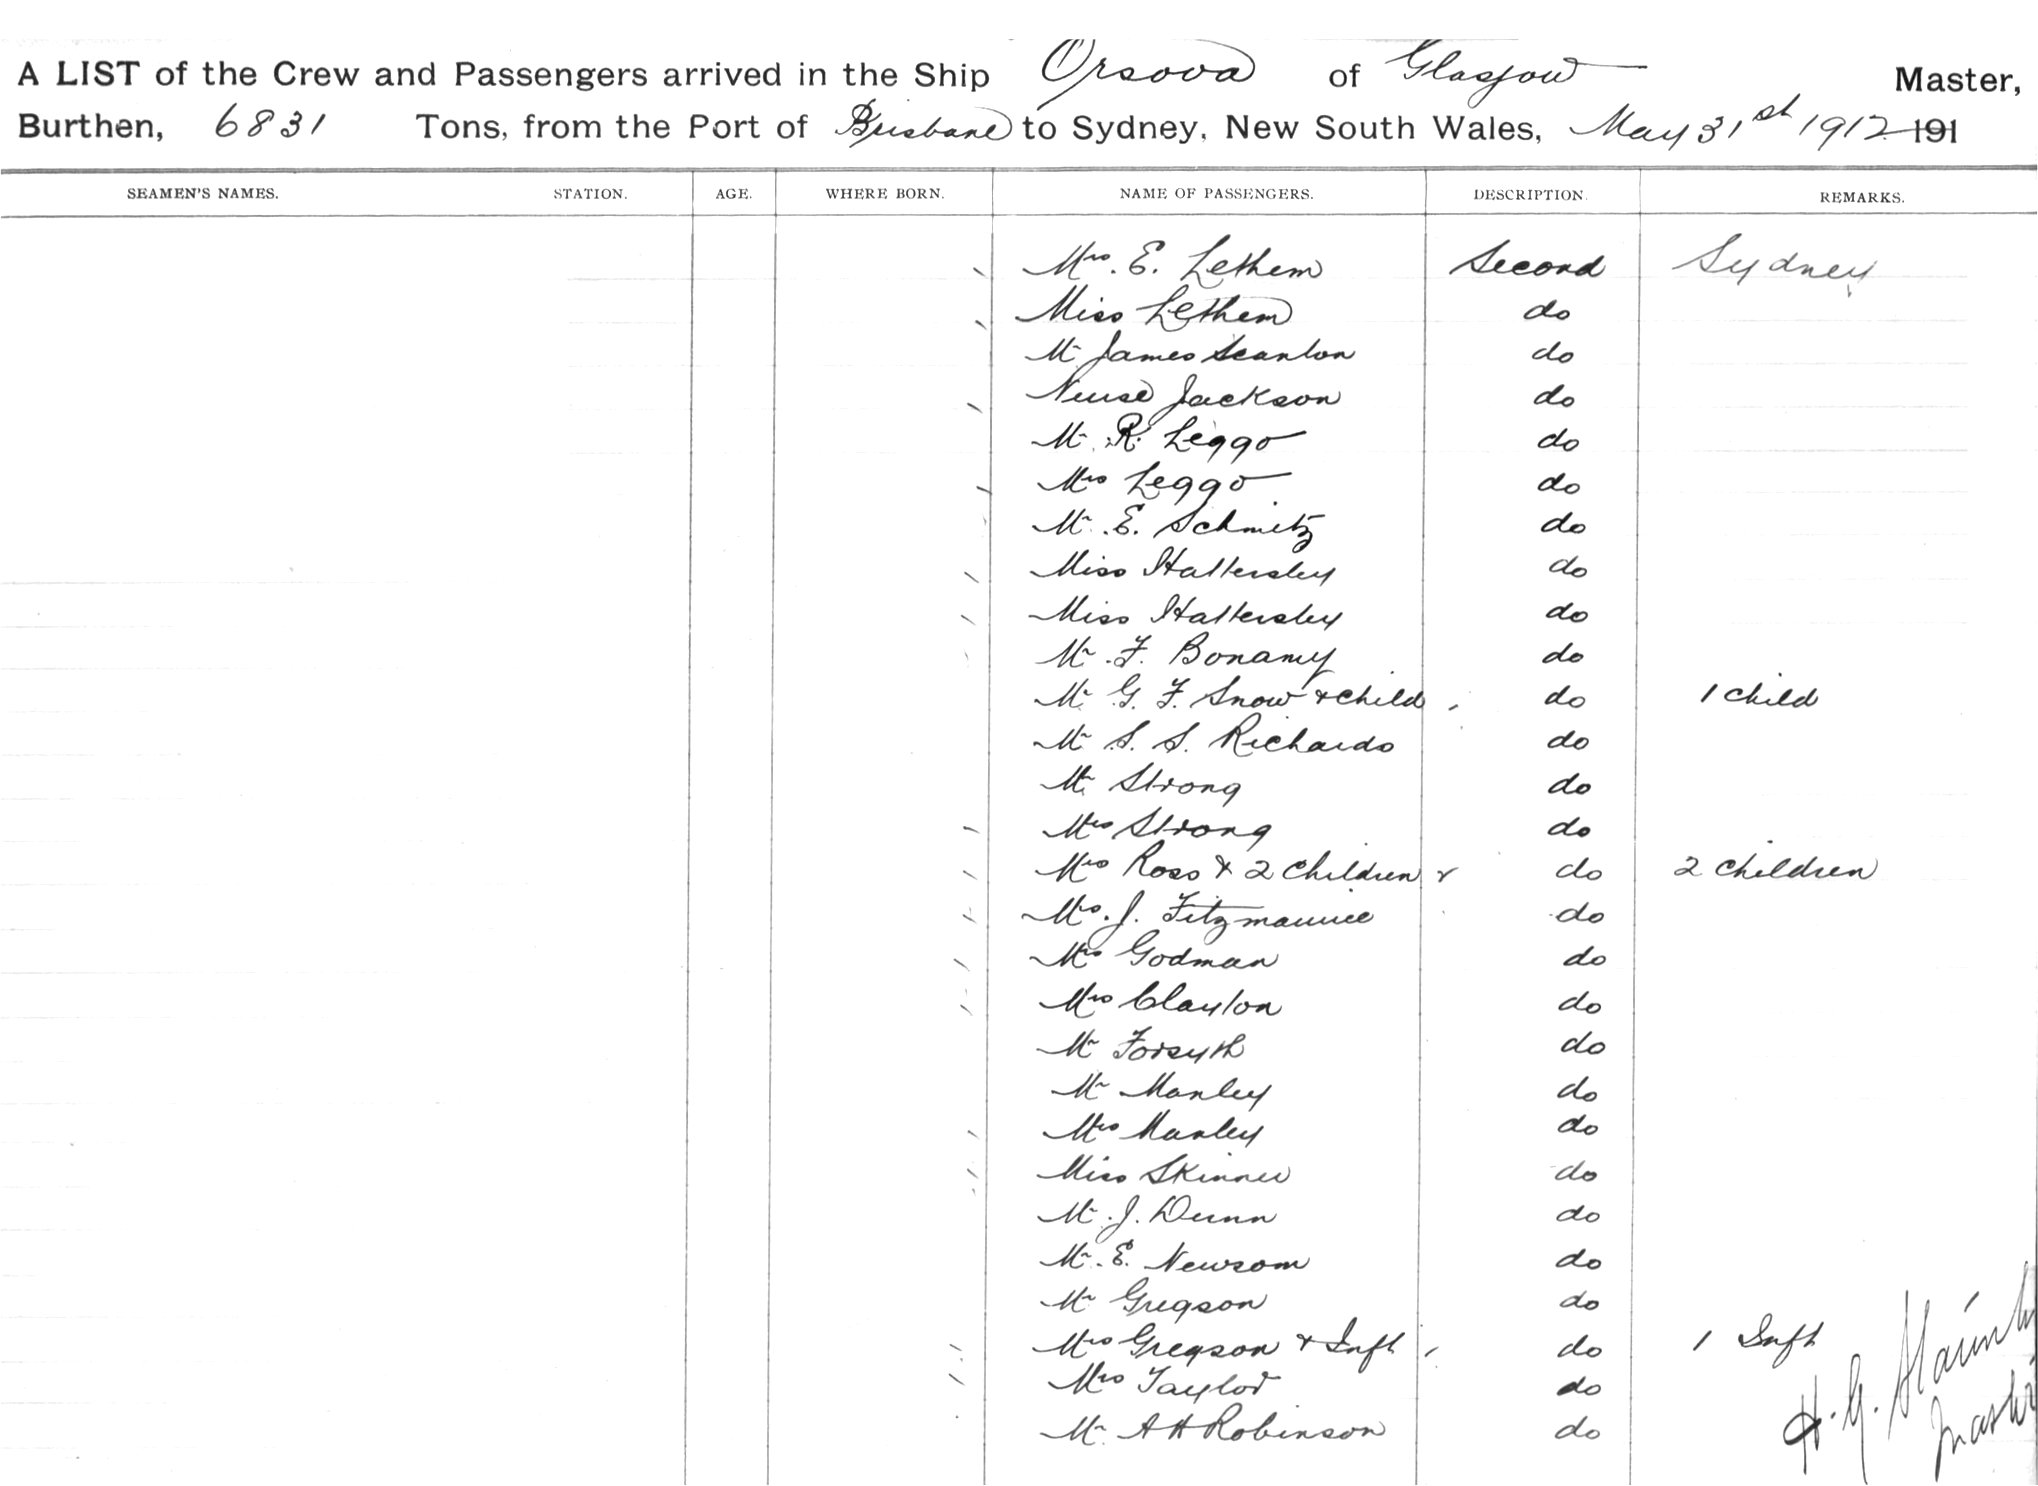 A LIST of the Crew and Passengers arrived in the Ship Orsova of Glasgow Master,
Burthen, 6831 Tons, from the Port of Brisbane to Sydney, New South Wales, May 31st 1912 191
SEAMEN'S NAMES. STATION. AGE. WHERE BORN. NAME OF PASSENGERS. DESCRIPTION. REMARKS.
Mrs. E. Lethem Second Sydney
Miss Lethem do
Mr James Scanlon do
Nurse Jackson do
Mr. R. Leggo do
Mrs Leggo do
Mr. E. Schmitz do
Miss Hattersley do
Miss Hattersley do
Mr. F. Bonamy do
Mr G. F. Snow & child do 1 child
Mr S. S. Richards do
Mr. Strong do
Mrs Strong do
Mrs Ross & 2 Children do 2 Children
Mrs. J. Fitzmaurice do
Mrs Godman do
Mrs Clayton do
Mr Forsyth do
Mr Manley do
Mrs Manley do
Miss Skinner do
Mr. J. Dunn do
Mr. E. Newsom do
Mr Gregson do
Mrs Gregson & Inft do 1 Inft
Mrs Taylor do
Mr. A H Robinson do
H. G.